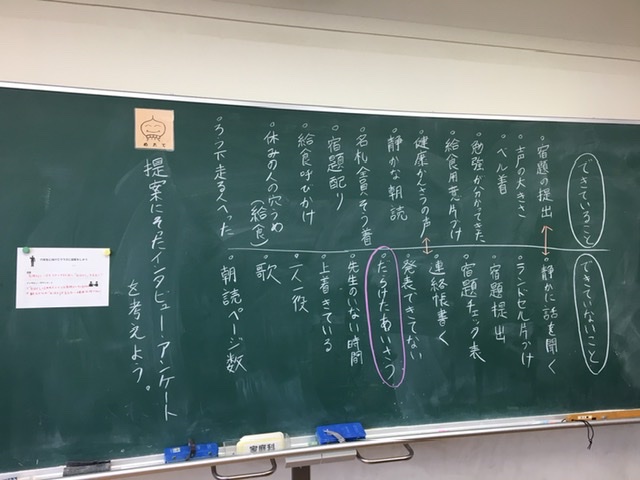 できていること
・宿題の提出
・声の大きさ
・ベル着
・勉強が分かってきた
・給食用荒片づけ
・健康かんさつの声
・静かな朝読
・名札全員そう着
・宿題配り
・給食呼びかけ
・休みの人の穴うめ
(給食)
・ろう下走る人へった
できていないこと
・静かに話を聞く
・ランドセル片づけ
・宿題提出
・宿題チェック表
・連絡帳書く
・発表できてない
・だらけたあいさつ
・先生のいない時間
・上着きている
・一人一役
・歌
・朝読ページ数
めあて
提案にそったインタビュー・アンケート
を考えよう。
家庭科